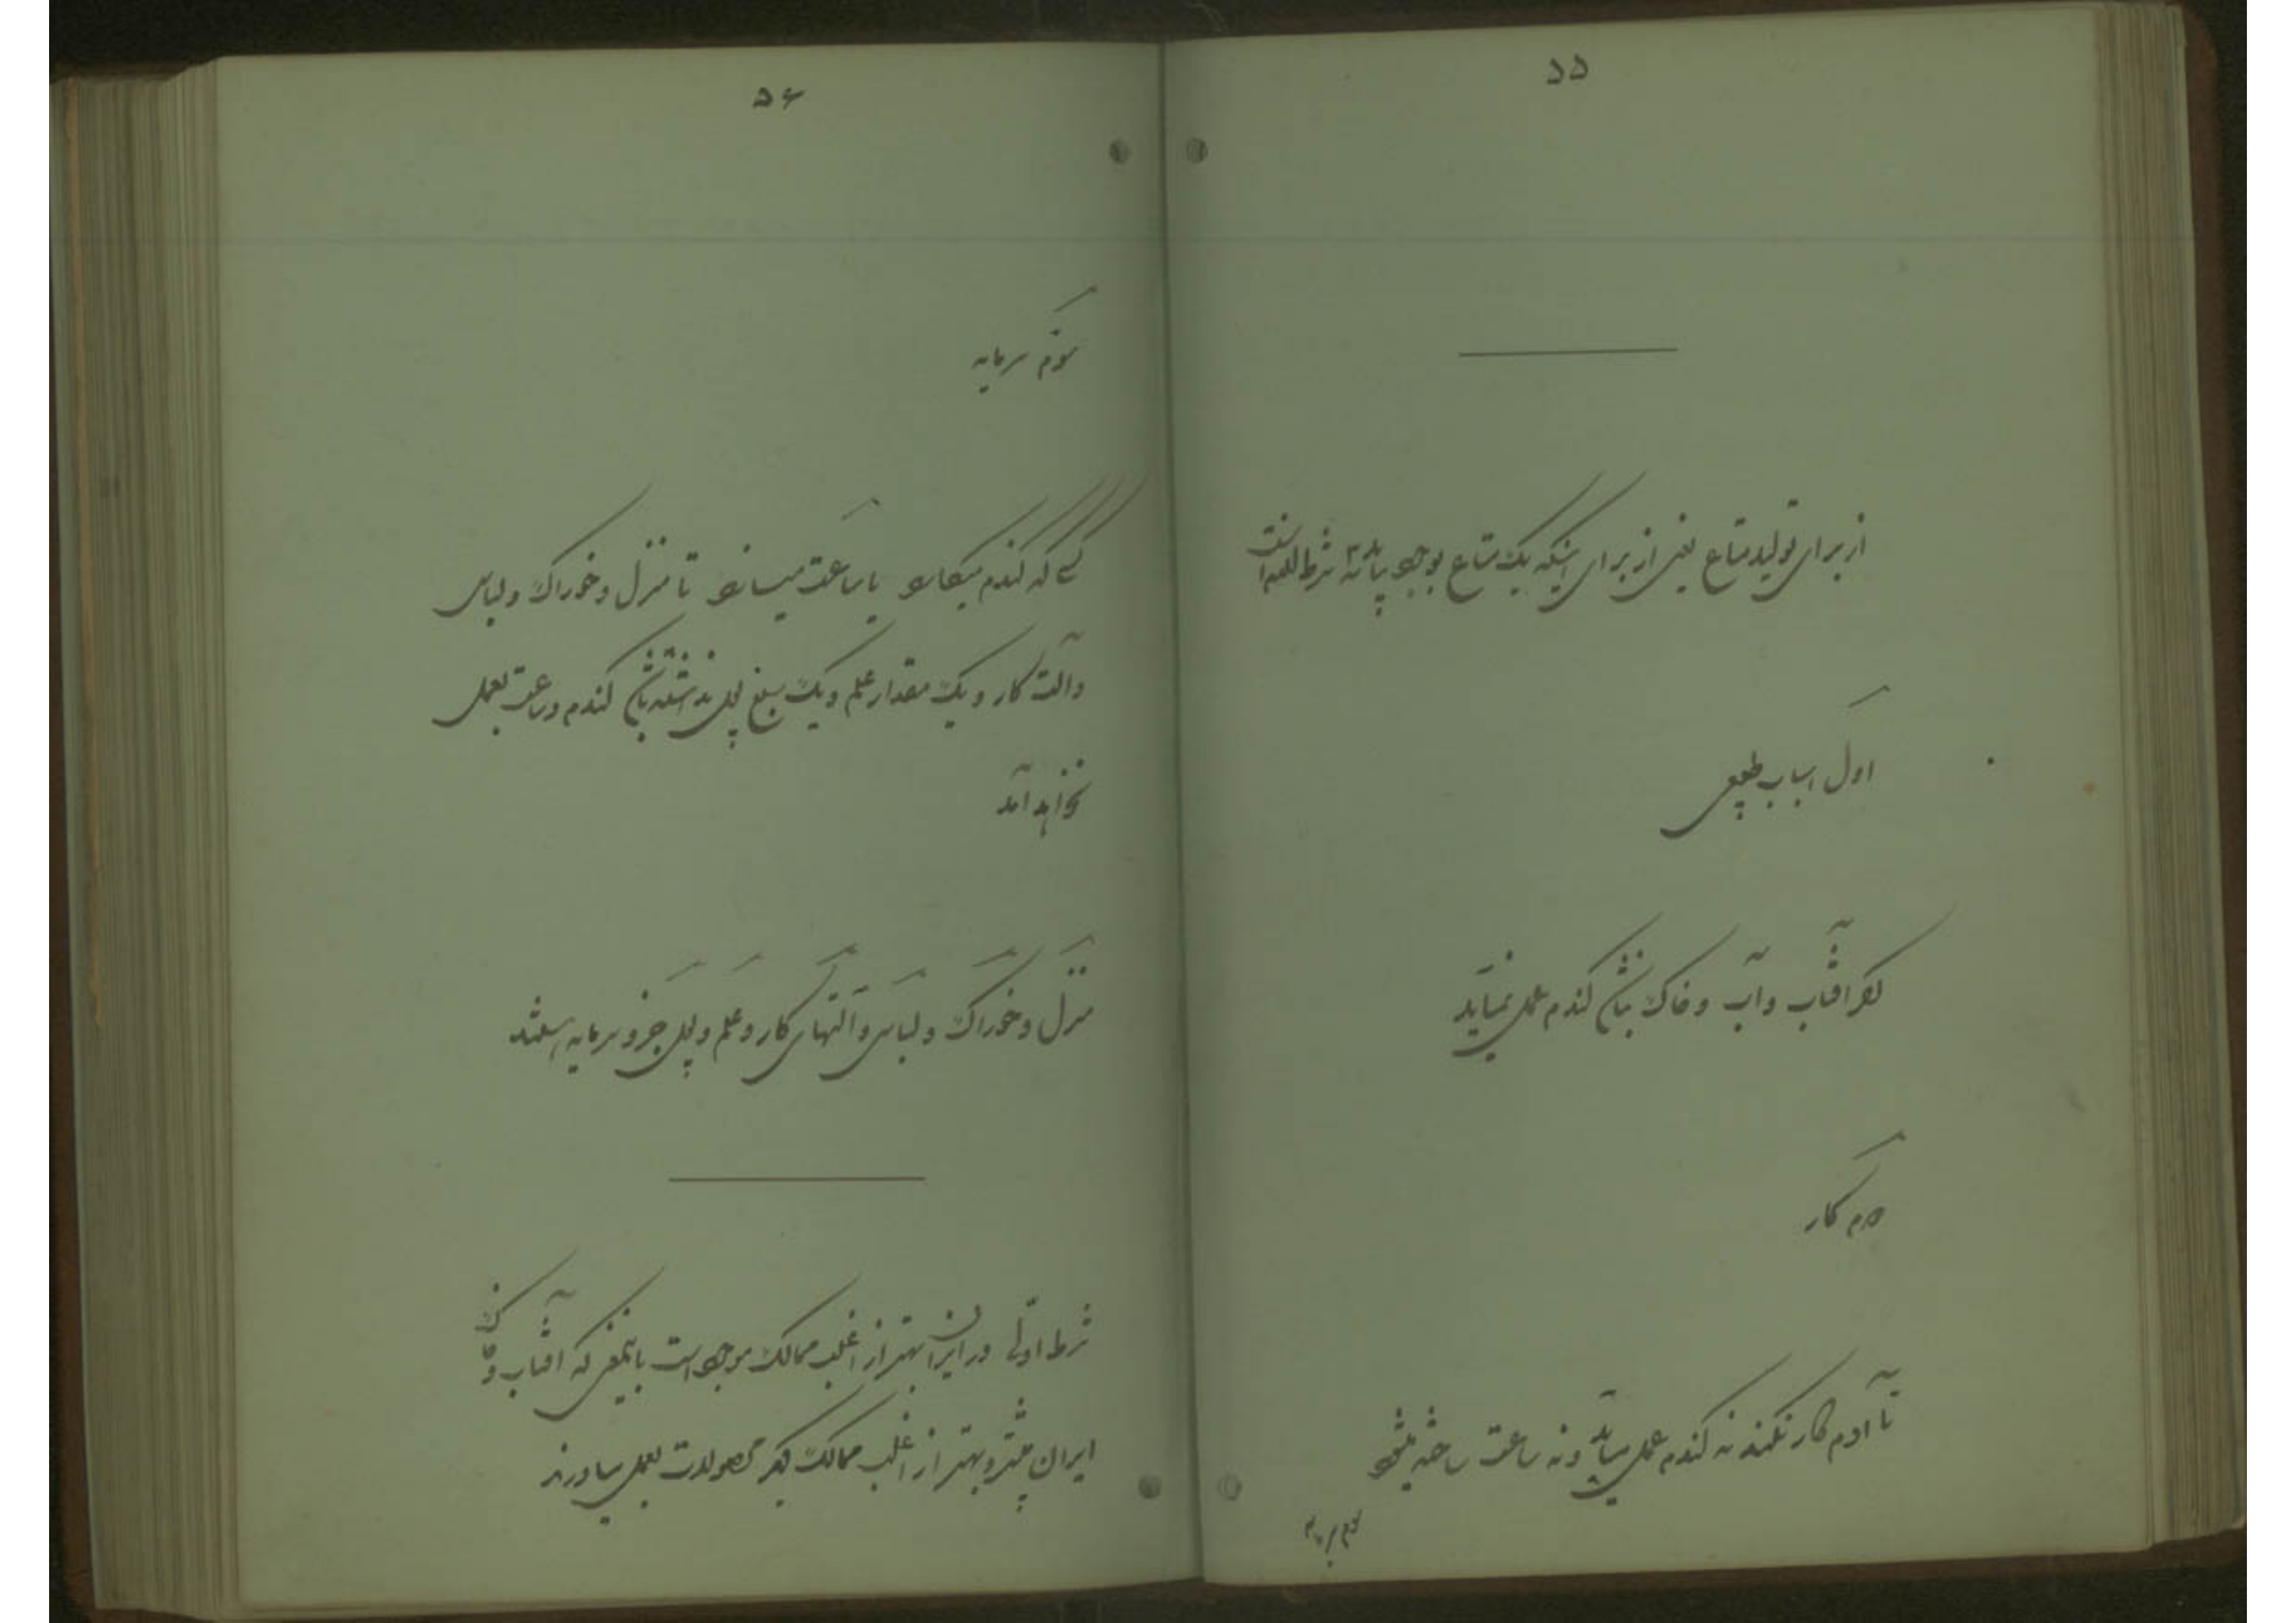 ۵۵
از برای تولید متاع یعنی از برای اینکه یک متاع بوجود بیاید سه شرط لازم است
اول اسباب طبیعی
بدون آفتاب و آب و خاک نباتی گندم عمل نمیاید
دوم کار
تا آدم کار نکند نه گندم عمل میاید و نه ساعت ساخته میشود
سوم سرمایه
۵۶
سوم سرمایه
کسی که گندم میکارد یا ساعت میسازد تا منزل و خوراک و لباس
و آلت کار و یک مقدار علم و یک مبلغ پول نداشته باشد گندم و ساعت بعمل
نخواهد آمد
منزل و خوراک و لباس و آلتهای کار و علم و پول جزو سرمایه هستند
شرط اولی در ایران بهتر از اغلب ممالک موجود است باینمعنی که آفتاب و خاک
ایران بیشتر و بهتر از اغلب ممالک دیگر محصولات بعمل میاورند